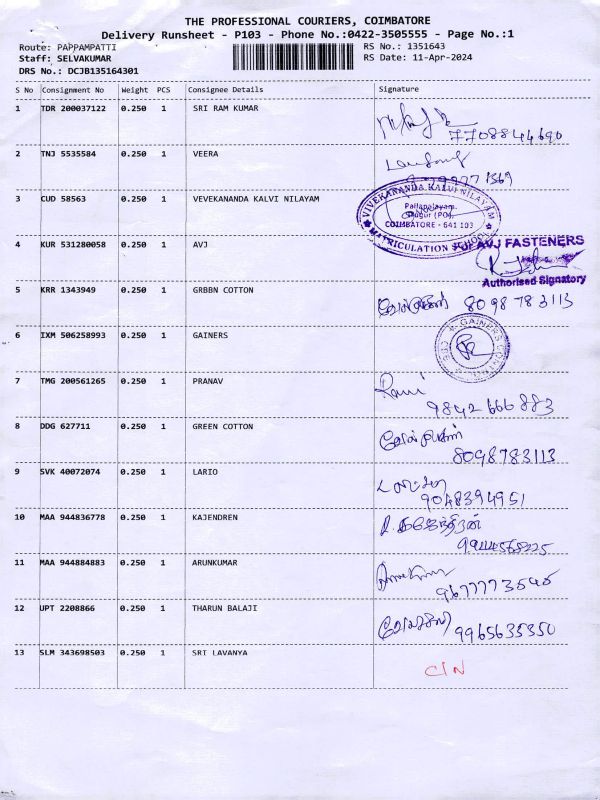 THE PROFESSIONAL COURIERS, COIMBATORE
Delivery Runsheet - P103 - Phone No.:0422-3505555 - Page No.:1
Route: PAPPAMPATTI RS No.: 1351643
Staff: SELVAKUMAR RS Date: 11-Apr-2024
DRS No.: DCJB135164301
S No Consignment No Weight PCS Consignee Details Signature
1 TDR 200037122 0.250 1 SRI RAM KUMAR
7708844690
2 TNJ 5535584 0.250 1 VEERA
3 CUD 58563 0.250 1 VEVEKANANDA KALVI NILAYAM
VIVEKANANDA KALVI NILAYAM
Pallapalayam,
COIMBATORE - 641 103
MATRICULATION SCHOOL
4 KUR 531280058 0.250 1 AVJ
For AVJ FASTENERS
Authorised Signatory
5 KRR 1343949 0.250 1 GRBBN COTTON
8098783113
6 IXM 506258993 0.250 1 GAINERS
GAINERS
CBE
7 TMG 200561265 0.250 1 PRANAV
Ravi
9842666883
8 DDG 627711 0.250 1 GREEN COTTON
8098783113
9 SVK 40072074 0.250 1 LARIO
9048394951
10 MAA 944836778 0.250 1 KAJENDREN
11 MAA 944884883 0.250 1 ARUNKUMAR
12 UPT 2208866 0.250 1 THARUN BALAJI
9965635350
13 SLM 343698503 0.250 1 SRI LAVANYA
CIN